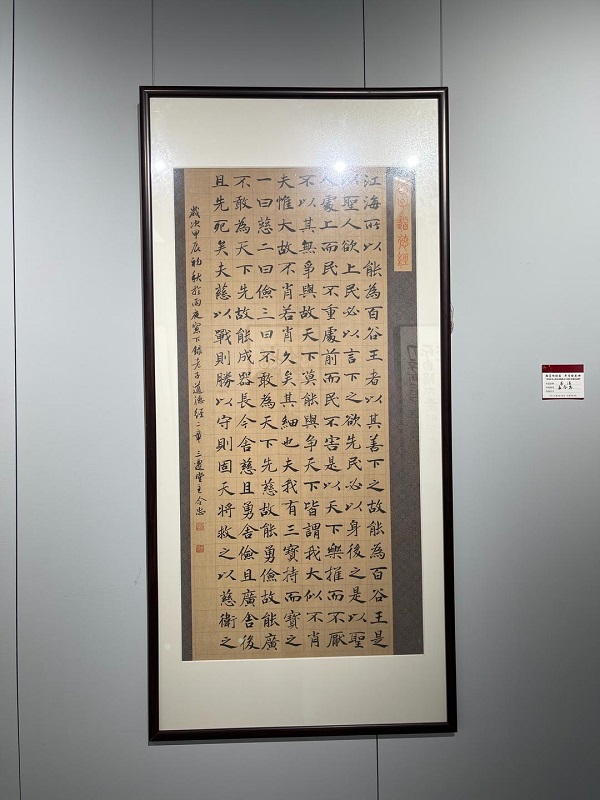 老子道德經
江海所以能為百谷王者以其善下之故能為百谷王是
以聖人欲上民必以言下之欲先民必以身後之是以聖
人處上而民不重處前而民不害是以天下樂推而不厭
不以其無爭與故天下莫能與爭天下皆謂我大似不肖
夫惟大故不肖若肖久矣其細也夫我有三寶持而寶之
一曰慈二曰儉三曰不敢為天下先慈故能勇儉故能廣
不敢為天下先故能成器長今舍慈且勇舍儉且廣舍後
且先死矣夫慈以戰則勝以守則固天將救之以慈衛之
歲次甲辰初秋於南庭窗下錄老子道德經二章